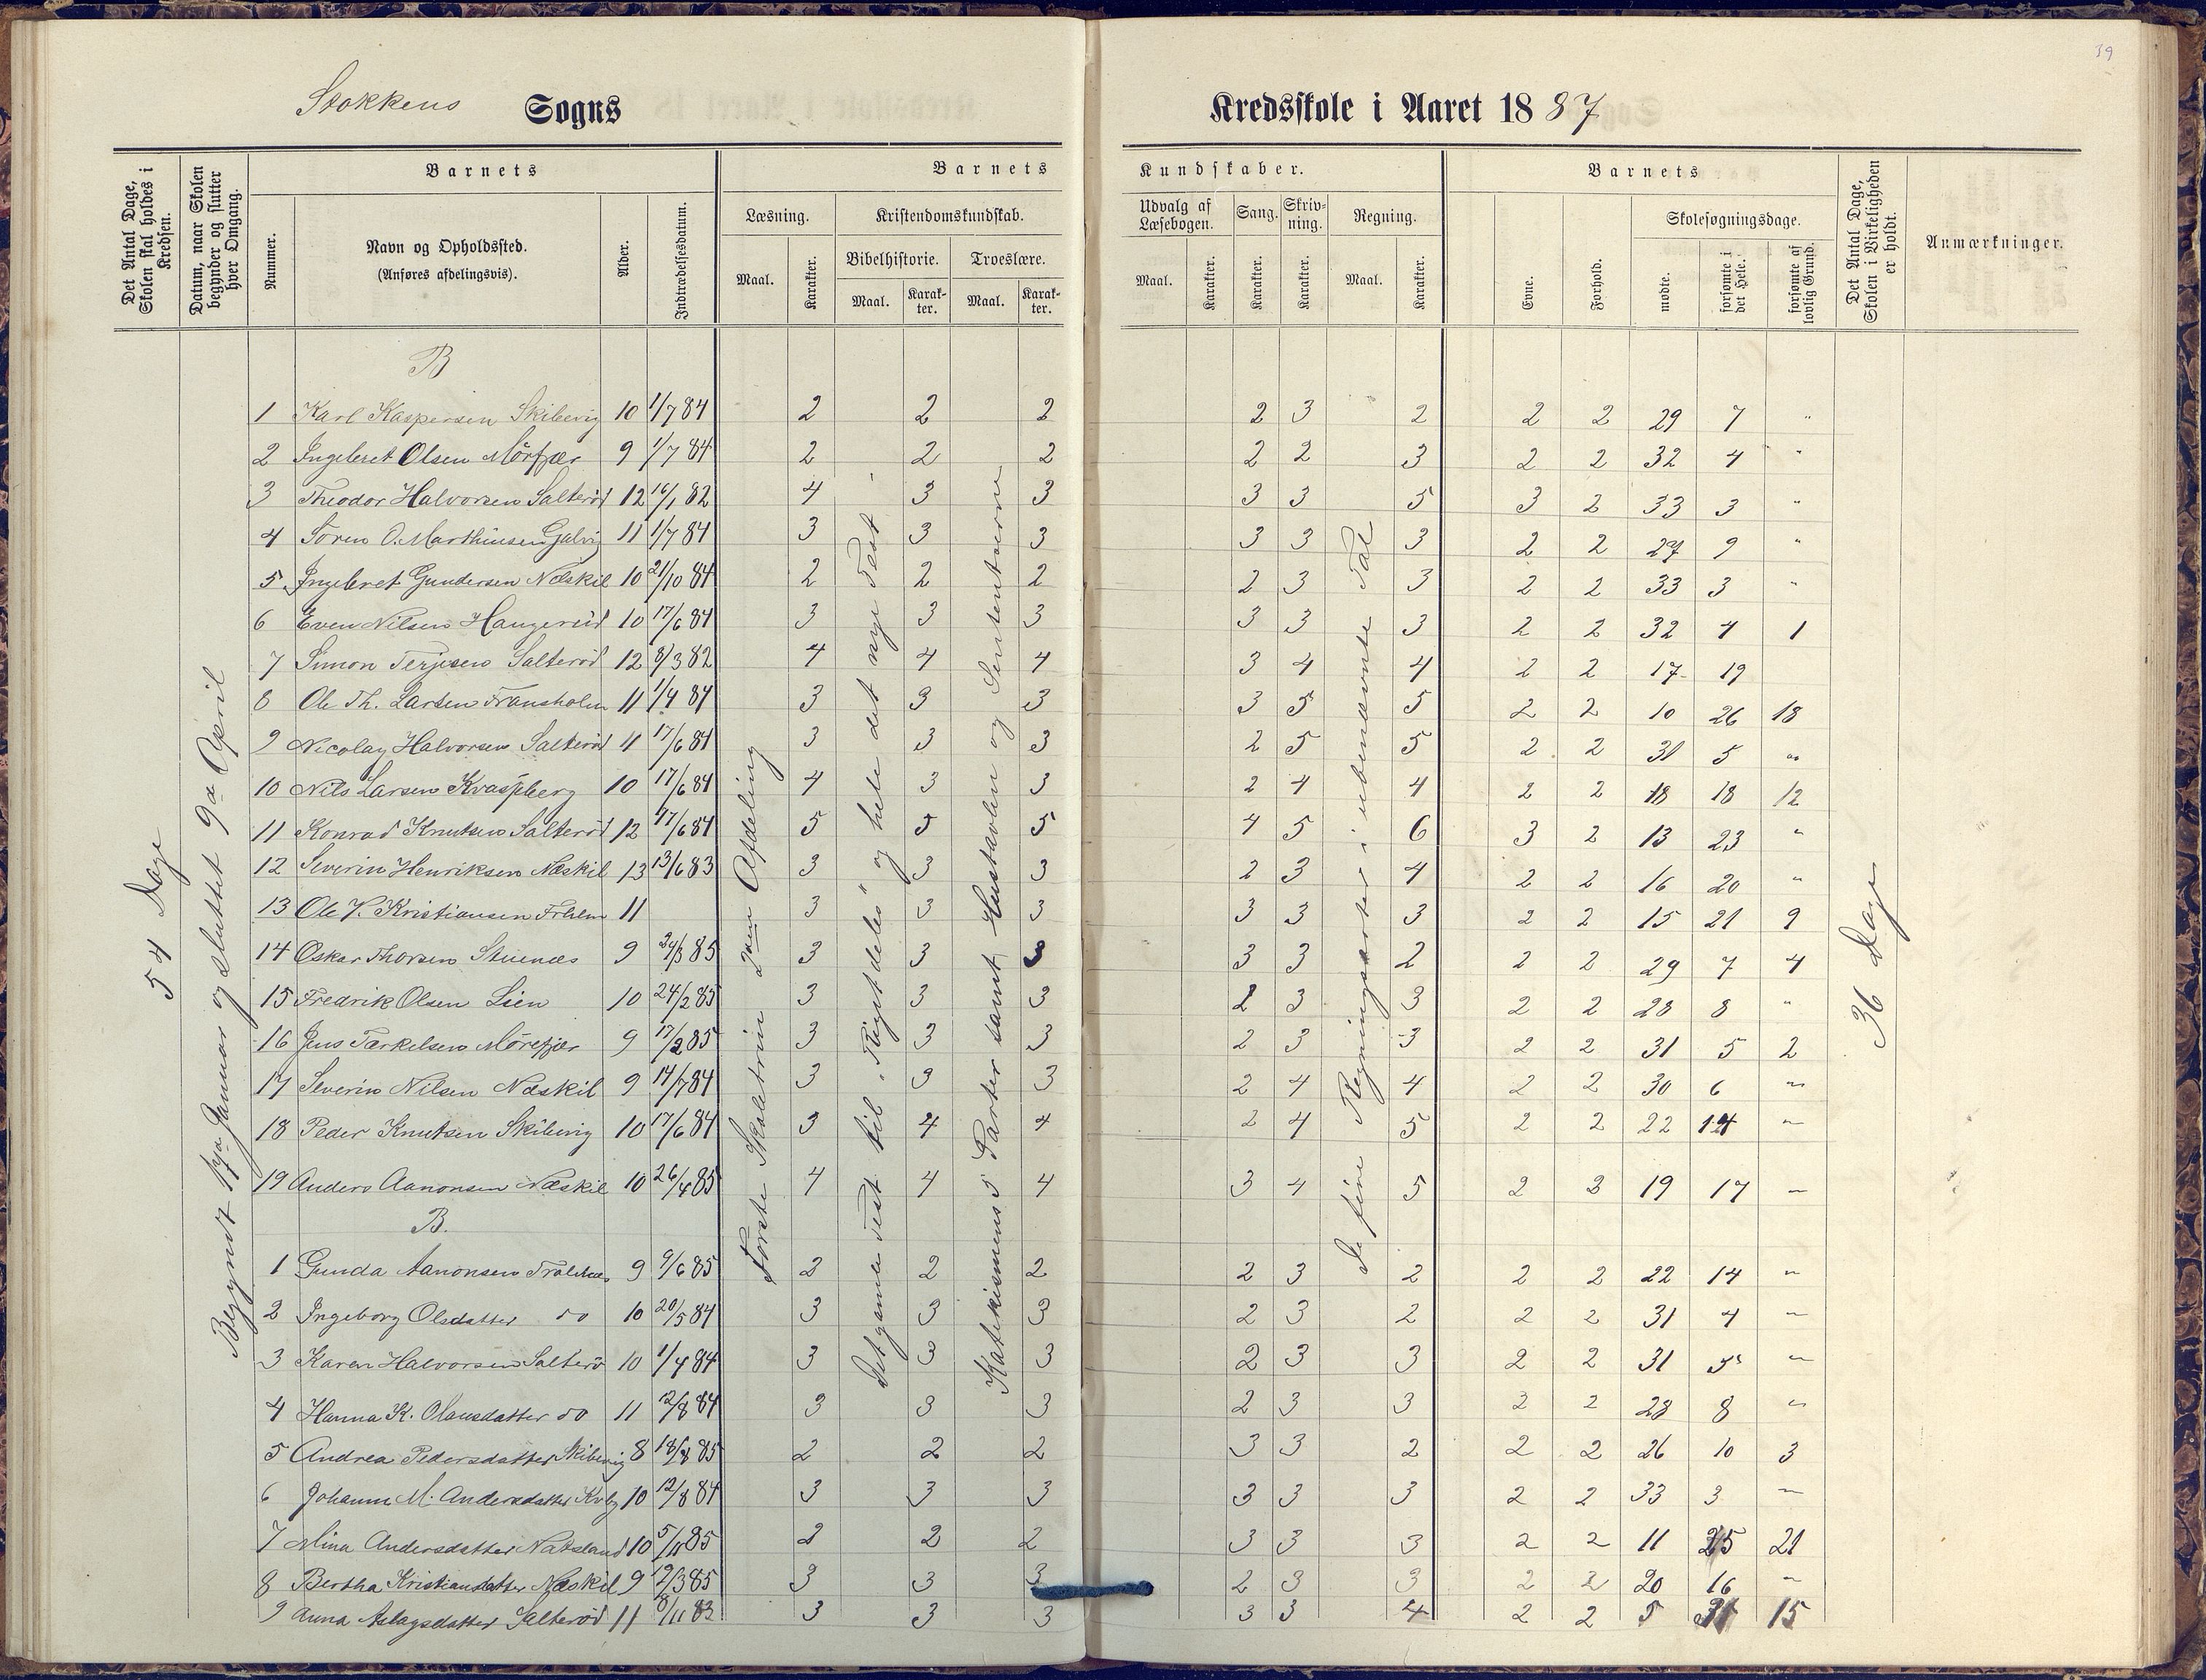 39
Stokkens Sogns Kredsskole i Aaret 1887
Det Antal Dage, Skolen skal holdes i Kredsen.
Datum, naar Skolen begynder og slutter hver Omgang.
Barnets
Nummer.
Navn og Opholdssted.
(Anføres afdelingsvis).
Alder.
Indtrædelsesdatum.
Barnets Kundskaber.
Læsning.
Kristendomskundskab.
Bibelhistorie.
Troeslære.
Udvalg af Læsebogen.
Sang.
Skrivning.
Regning.
Maal. Karakter. Maal. Karakter. Maal. Karakter. Maal. Karakter. Karakter. Karakter. Maal. Karakter.
Barnets
Evne.
Forhold.
Skolesøgningsdage.
mødte.
forsømte i det Hele.
forsømte af lovlig Grund.
Det Antal Dage, Skolen i Virkeligheden er holdt.
Anmærkninger.
54 Dage
Begyndt 17de Januar og sluttet 9de April
Første Skoletrin 2den Afdeling
Det gamle Test til "Rigets deles" og hele det nye Test
Katekismens 5 Parter samt Hustavlen og Sententserne
De fire Regningsarter i ubenævnte Tal
36 Dage
B
1 Karl Kaspersen Skibevig 10 1/7 84 2 2 2 2 3 2 2 2 29 7 "
2 Ingebret Olsen Mörfjær 9 1/7 84 2 2 2 2 2 3 2 2 32 4 "
3 Theodor Halvorsen Salteröd 12 16/1 82 4 3 3 3 3 5 3 2 33 3 "
4 Sören O. Marthinsen Galvig 11 1/7 84 3 3 3 3 3 3 2 2 27 9 "
5 Ingebret Gundersen Næskil 10 21/10 84 2 2 2 2 3 3 2 2 33 3 "
6 Even Nilsen Hangeröd 10 17/6 84 3 3 3 3 3 3 2 2 32 4 1
7 Simon Terjesen Salteröd 12 8/3 82 4 4 4 3 4 4 2 2 17 19
8 Ole Th. Larsen Fransholm 11 1/4 84 3 3 3 3 5 5 2 2 10 26 18
9 Nicolay Halvorsen Salteröd 11 17/6 84 3 3 3 2 5 5 2 2 31 5 "
10 Nils Larsen Kvasjberg 10 17/6 84 4 3 3 2 4 4 2 2 18 18 12
11 Konrad Knutsen Salteröd 12 17/6 84 5 5 5 4 5 6 3 2 13 23 "
12 Severin Henriksen Næskil 13 13/6 83 3 3 3 2 3 4 2 2 16 20 "
13 Ole V. Kristiansen 11 3 3 3 3 3 3 2 2 15 21 9
14 Oskar Thorsen Stuenæs 9 24/3 85 3 3 3 3 3 2 2 2 29 7 4
15 Fredrik Olsen Lien 10 24/2 85 3 3 3 2 3 3 2 2 28 8 "
16 Jens Tærkelsen Mörefjær 9 17/2 85 3 3 3 2 3 3 2 2 31 5 2
17 Severin Nilsen Næskil 9 14/7 84 3 3 3 2 4 4 2 2 30 6 "
18 Peder Knutsen Skibevig 10 17/6 84 3 4 4 2 4 5 2 2 22 14 "
19 Anders Aanonsen Næskil 10 26/4 85 4 4 4 3 4 5 2 3 19 17 "
B.
1 Gunda Aanonsen 9 9/6 85 2 2 2 2 3 2 2 2 22 14 "
2 Ingeborg Olsdatter do 10 20/5 84 3 3 3 2 3 2 2 2 31 4 "
3 Karen Halvorsen Salterö 10 1/4 84 3 3 3 2 3 3 2 2 31 5 "
4 Hanna K. Olausdatter do 11 12/8 84 3 3 3 2 3 3 2 2 28 8 "
5 Andrea Pedersdatter Skibevig 8 18/8 85 2 2 2 3 3 2 2 2 26 10 3
6 Johanne M. Andersdatter 10 12/8 84 3 3 3 3 3 3 2 2 33 3 "
7 Mina Andersdatter Natsland 10 5/11 85 2 2 2 3 3 3 2 2 11 25 21
8 Bertha Kristiansdatter Næskil 9 12/3 85 3 3 3 2 3 3 2 2 20 16 "
9 Anna Aslagsdatter Salteröd 11 8/11 83 3 3 3 3 3 4 2 2 5 31 15